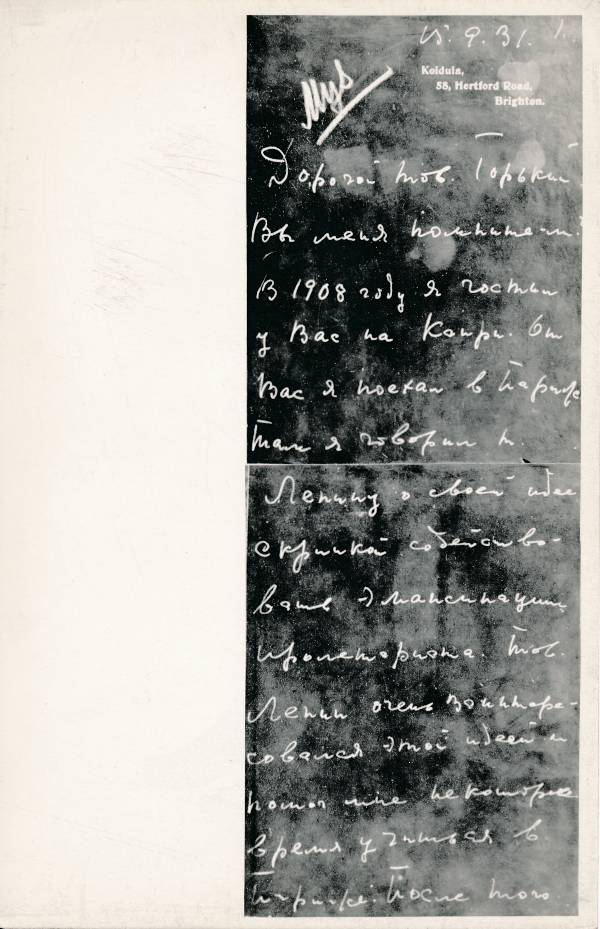 15. 9. 31.
Муз
Koidula,
58, Hertford Road,
Brighton.
Дорогой тов. Горький
Вы меня помните-ли?
В 1908 году я гостил
у Вас на Капри. От
Вас я поехал в Париж
Там я говорил т.
Ленину о своей идее
скрипкой содейство-
вать эмансипации
пролетариата. Тов.
Ленин очень заинтере-
совался этой идеей и
помог мне некоторое
время учиться в
Париже. После того